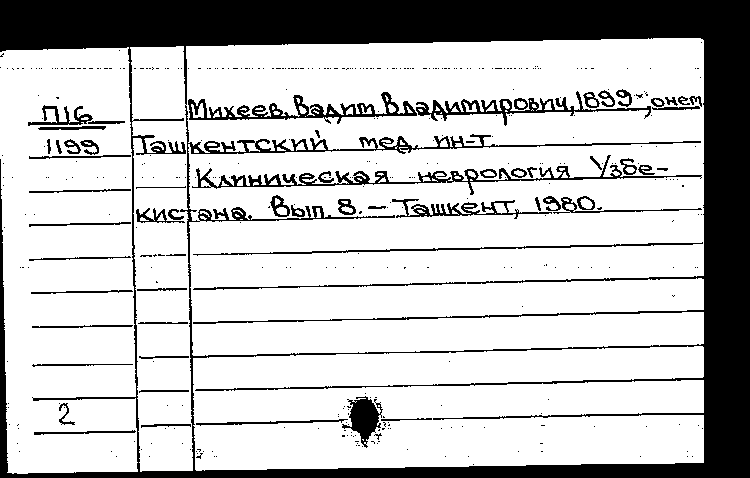 П16 Михеев, Вадим Владимирович, 1899-, о нем
1199 Ташкентский мед. ин-т.
Клиническая неврология Узбе-
кистана. Вып. 8. – Ташкент, 1980.
2